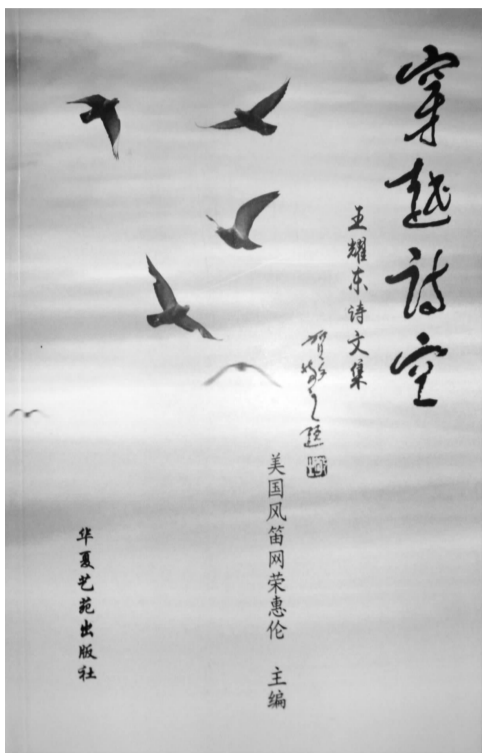 穿越诗空
王耀东诗文集
贺敬之题
美国风笛网荣惠伦 主编
华夏艺苑出版社